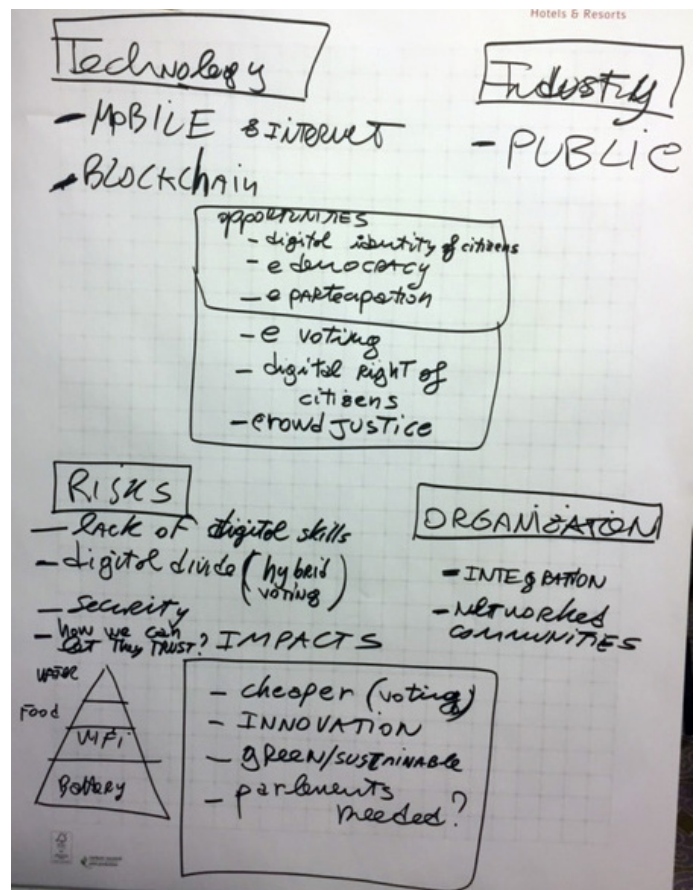 Hotels & Resorts
Technology
- MOBILE & INTERNET
- BLOCKChain
Industry
- PUBLIC
opportunities
- digital identity of citizens
- e democracy
- e partecipation
- e voting
- digital right of
citizens
- crowd justice
RISKS
- lack of digital skills
- digital divide (hybrid
voting)
- security
- how we can
let they TRUST?
ORGANIZATION
- INTEGRATION
- NETWORKED
COMMUNITIES
IMPACTS
- cheaper (voting)
- INNOVATION
- green/SUSTAINABLE
- parlements
needed?
WATER
Food
WiFi
Battery